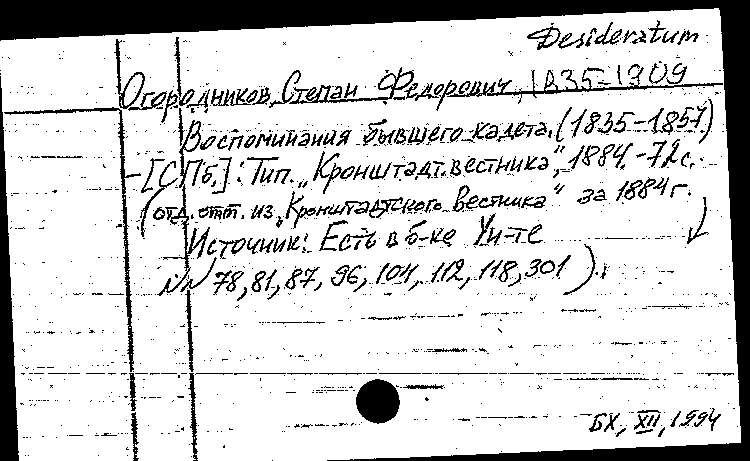 Desideratum
Огородников, Степан Федорович, 1835-1909
Воспоминания бывшего кадета. (1835-1851)
-[СПб.]: Тип. „Кронштадт. вестника“, 1884. -72 с.
(отд. отт. из „Кронштадтского Вестника“ за 1884 г.
Источник: Есть в б-ке Ун-те
NN 78, 81, 87, 96, 104, 112, 118, 301).
БХ, XII, 1994